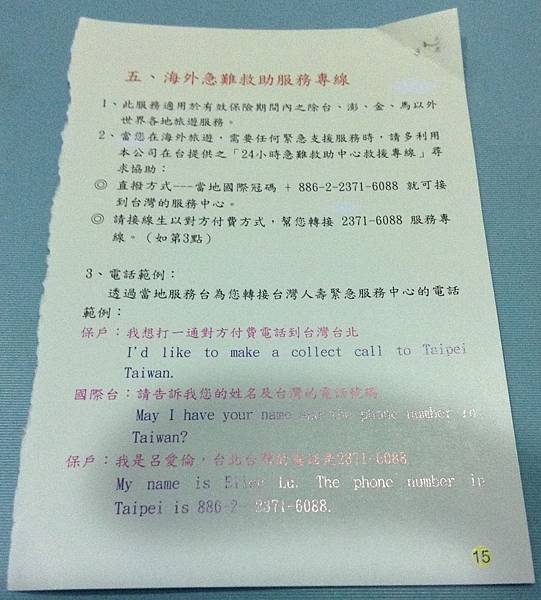 五、海外急難救助服務專線
1、此服務適用於有效保險期間內之除台、澎、金、馬以外
世界各地旅遊服務。
2、當您在海外旅遊，需要任何緊急支援服務時，請多利用
本公司在台提供之「24小時急難救助中心救援專線」尋
求協助：
◎ 直撥方式---當地國際冠碼 + 886-2-2371-6088 就可接
到台灣的服務中心。
◎ 請接線生以對方付費方式，幫您轉接 2371-6088 服務專
線。（如第3點）
3、電話範例：
透過當地服務台為您轉接台灣人壽緊急服務中心的電話
範例：
保戶：我想打一通對方付費電話到台灣台北
I'd like to make a collect call to Taipei
Taiwan.
國際台：請告訴我您的姓名及台灣的電話號碼
May I have your name and the phone number in
Taiwan?
保戶：我是呂愛倫，台北台灣的電話是2371-6088
My name is Lu. The phone number in
Taipei is 886-2- 2371-6088.
15